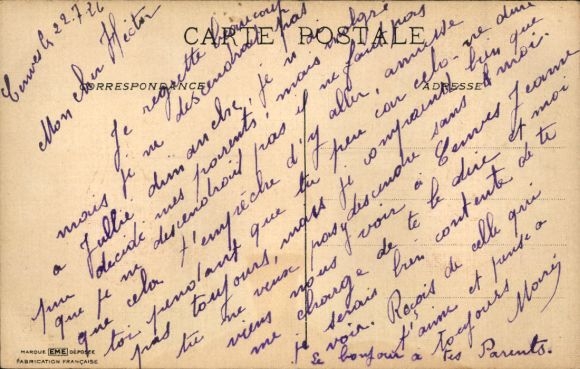 CARTE POSTALE
CORRESPONDANCE
ADRESSE
Cenves le 22.7.26
Mon cher Hector
Je regrette beaucoup
mais je ne descendrai pas
a Jullié dimanche, je n'ai
décidé mes parents, mais malgré
que je ne descendrai pas il ne faut pas
que cela t'empêche d'y aller, amuse
toi pendant que tu peux car cela ne dure
pas toujours, mais je comprends bien que
tu ne veux pas y descendre sans moi.
viens nous voir à Cenves Jeanne
me charge de te le dire et moi
je serais bien contente de te
voir. Reçois de celle qui
t'aime et pense a
toujours
Le bonjour a tes Parents.
MARQUE EME DÉPOSÉE
FABRICATION FRANÇAISE